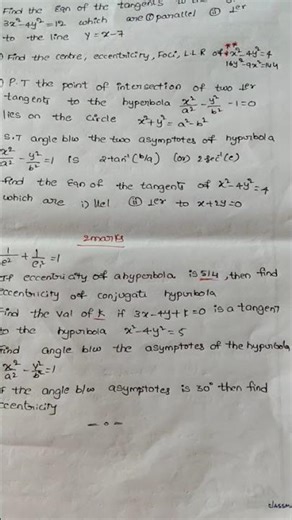 Find the Eqn of the tangents to the
3x²-4y²=12 which are ① parallel ② ⊥er
to the line y=x-7
) Find the centre, eccentricity, Foci, L L R of **x²-4y²=4
16y²-9x²=144
) P.T the point of intersection of two ⊥er
tangents to the hyperbola x²/a² - y²/b² -1=0
lies on the circle x²+y²=a²-b²
S.T angle b/w the two asymptotes of hyperbola
x²/a² - y²/b² =1 is 2tan⁻¹(b/a) (or) 2sec⁻¹(e)
find the Eqn of the tangents of x²-4y²=4
which are i) llel ii) ⊥er to x+2y=0
2marks
1/e² + 1/e₁² =1
If eccentricity of a hyperbola is 5/4, then find
eccentricity of conjugate hyperbola
Find the val of k if 3x-4y+k=0 is a tangent
to the hyperbola x²-4y²=5
Find angle b/w the asymptotes of the hyperbola
x²/a² - y²/b² =1
If the angle b/w asymptotes is 30° then find
eccentricity
-o-